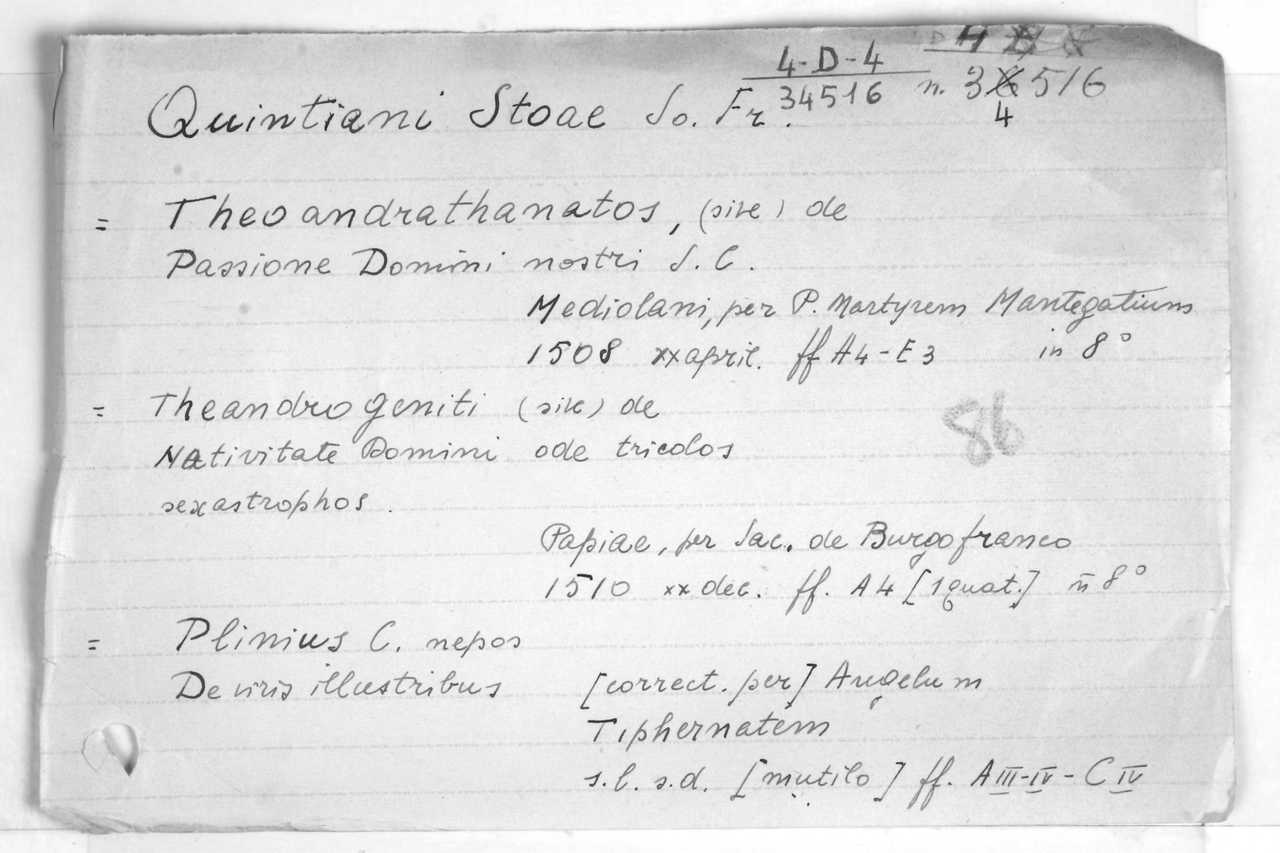 4-D-4
34516 n. 36516
4
Quintiani Stoae Jo. Fr.
= Theoandrathanatos, (sive) de
Passione Domini nostri J. C.
Mediolani, per P. Martyrem Mantegatium
1508 xx april. ff A4-E3 in 8°
= Theandrogeniti (sive) de
Nativitate Domini ode tricolos
sexastrophos.
86
Papiae, per Jac. de Burgofranco
1510 xx dec. ff. A4 [1 quat.] in 8°
= Plinius C. nepos
De viris illustribus [correct. per] Angelum
Tiphernatem
s.l. s.d. [mutilo] ff. AIII-IV-CIV